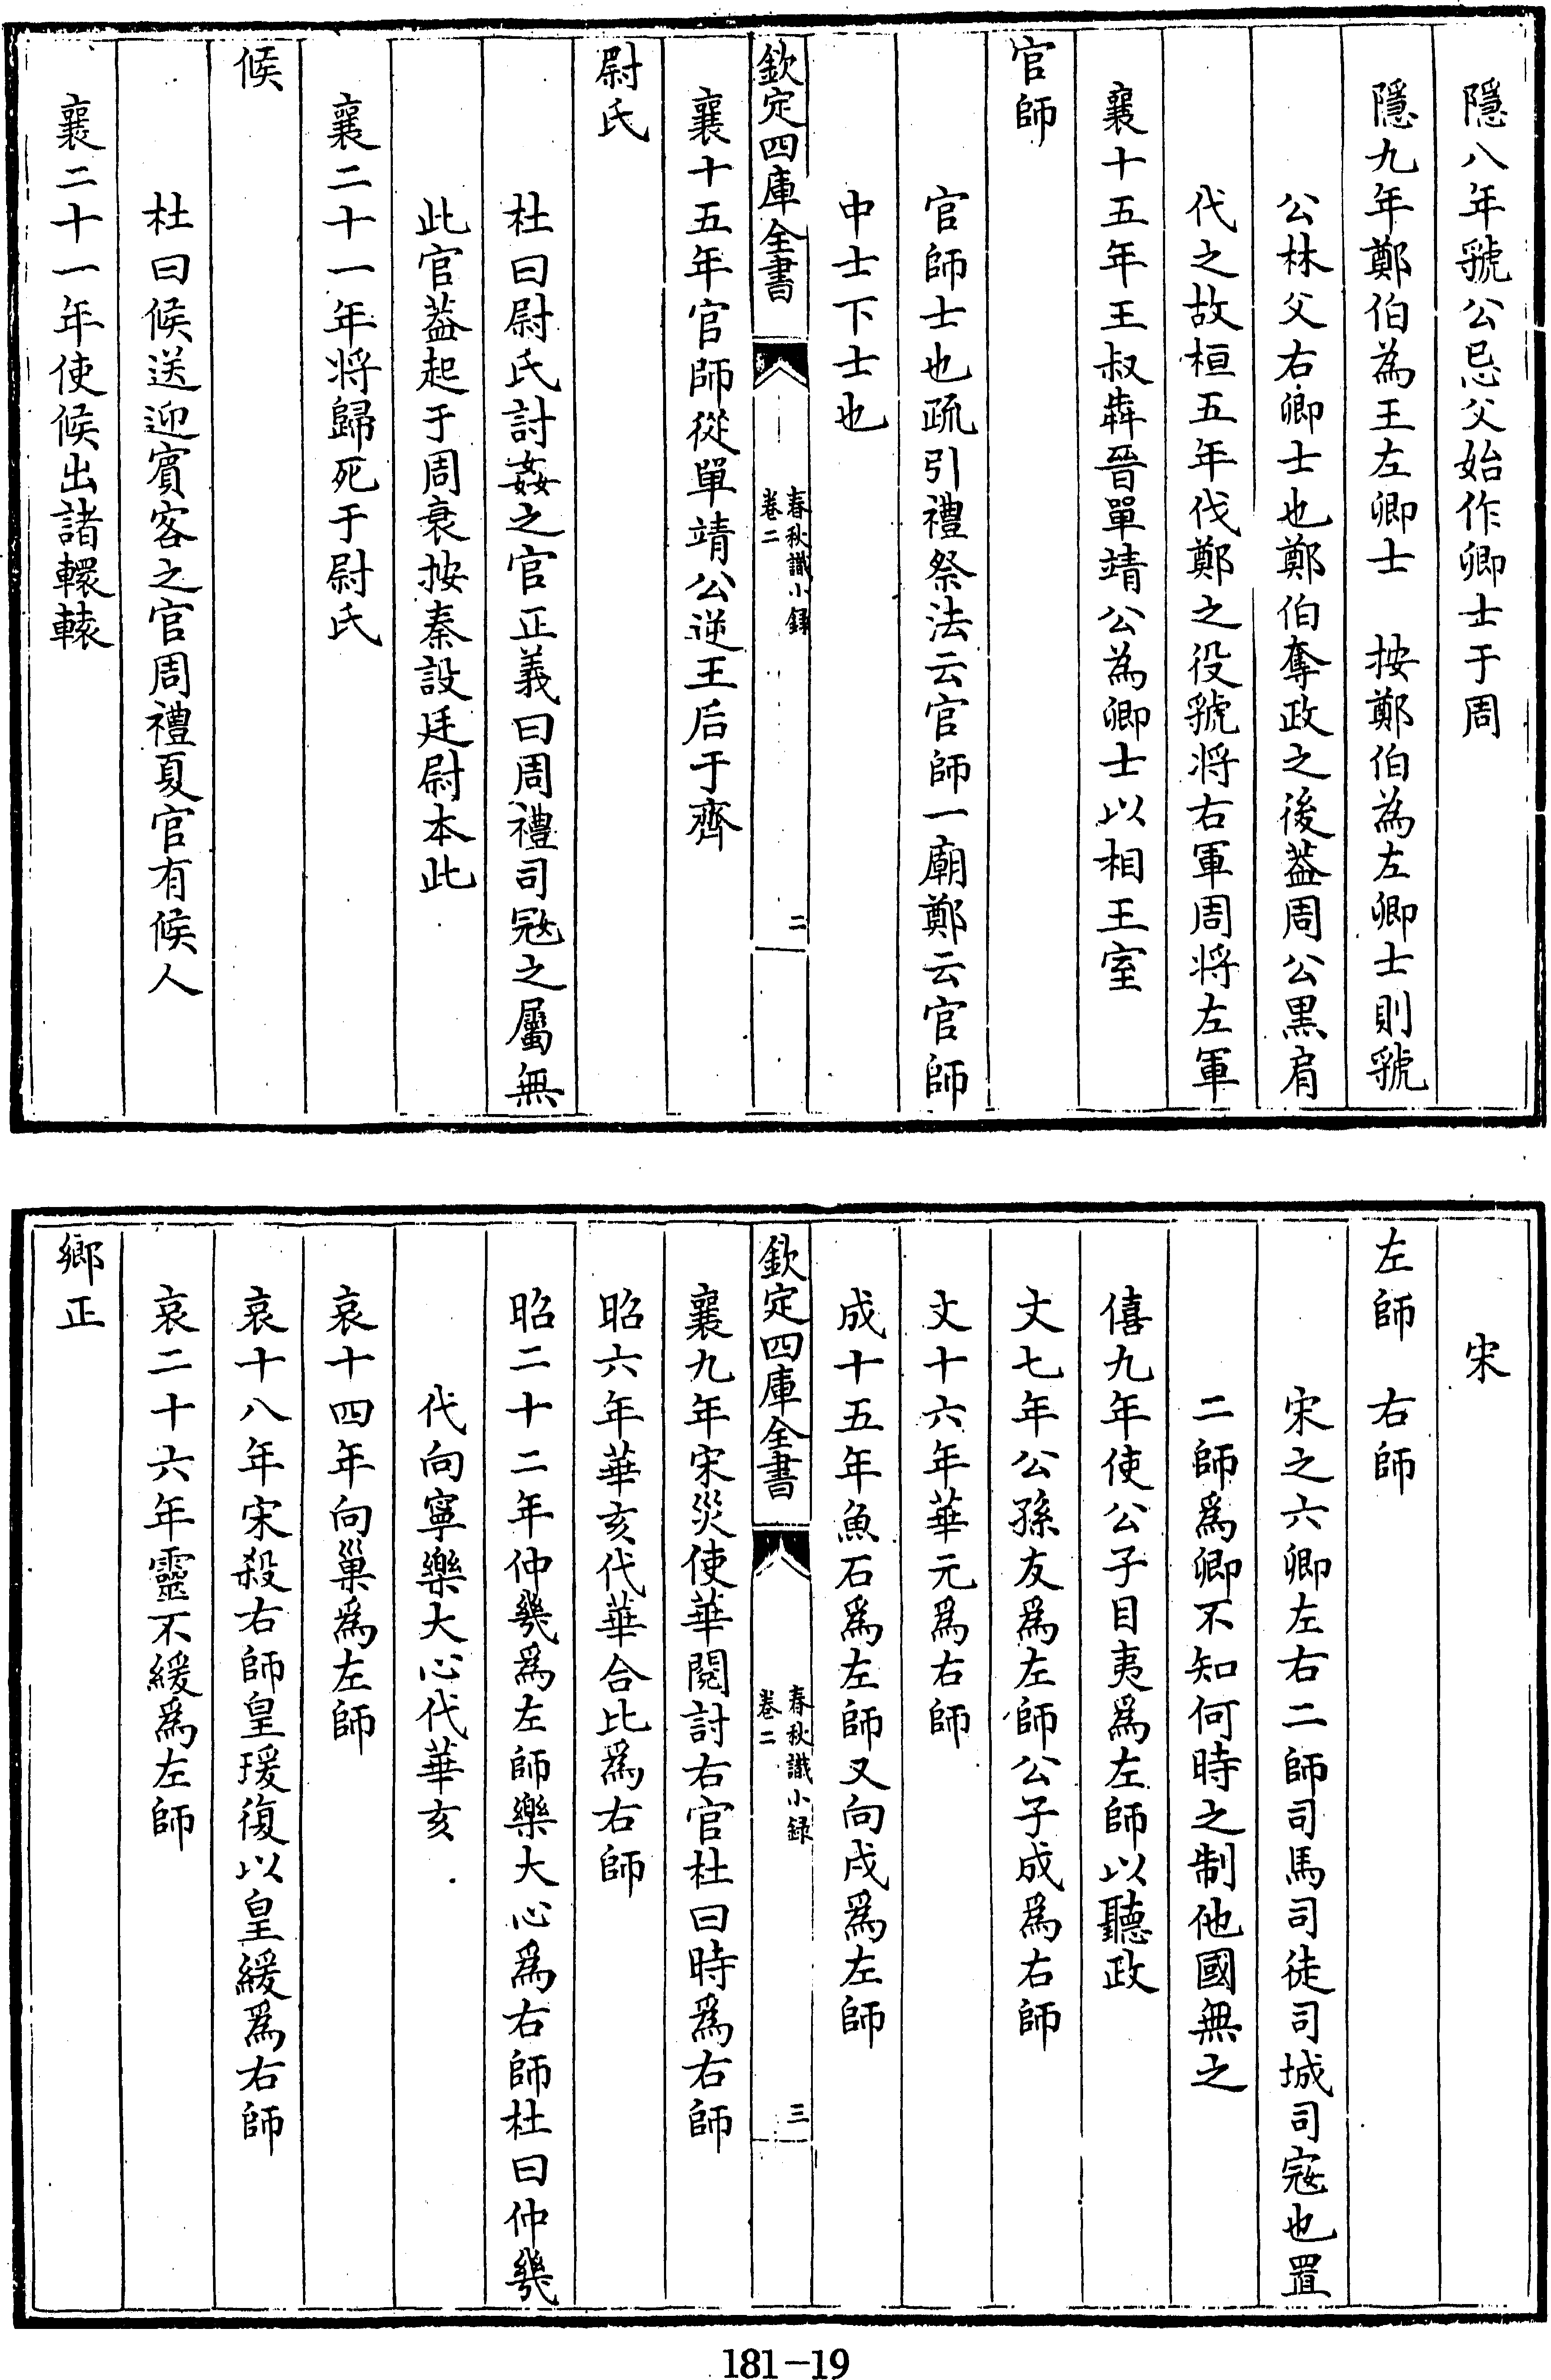 隱八年虢公忌父始作卿士于周
隱九年鄭伯為王左卿士　按鄭伯為左卿士則虢
公林父右卿士也鄭伯奪政之後葢周公黒肩
代之故桓五年伐鄭之役虢将右軍周将左軍
襄十五年王叔犇晉單靖公為卿士以相王室
官師
官師士也疏引禮祭法云官師一廟鄭云官師
中士下士也
欽定四庫全書
春秋識小録
卷二
二
襄十五年官師從單靖公逆王后于齊
尉氏
杜曰尉氏討姦之官正義曰周禮司寇之屬無
此官葢起于周衰按秦設廷尉本此
襄二十一年将歸死于尉氏
候
杜曰候送迎賓客之官周禮夏官有候人
襄二十一年使候出諸轘轅
宋
左師　右師
宋之六卿左右二師司馬司徒司城司寇也置
二師爲卿不知何時之制他國無之
僖九年使公子目夷爲左師以聽政
文七年公孫友爲左師公子成爲右師
文十六年華元爲右師
成十五年魚石爲左師又向戌爲左師
欽定四庫全書
春秋識小録
卷二
三
襄九年宋災使華閱討右官杜曰時爲右師
昭六年華亥代華合比爲右師
昭二十二年仲幾爲左師樂大心爲右師杜曰仲幾
代向寧樂大心代華亥
哀十四年向巢爲左師
哀十八年宋殺右師皇瑗復以皇緩爲右師
哀二十六年靈不緩爲左師
鄉正
181-19